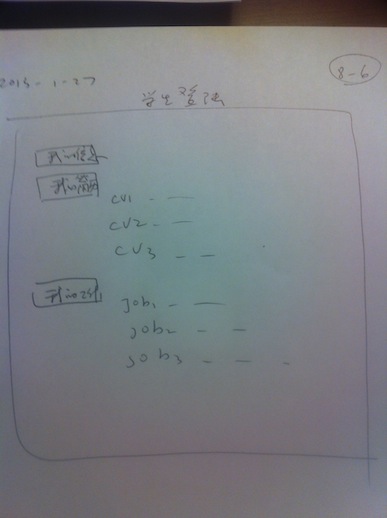 2015-1-27
8-6
学生登录
我的信息
我的简历
CV1 - —
CV2 - —
CV3 - —
我的
job1 - —
job2 - —
job3 - — -